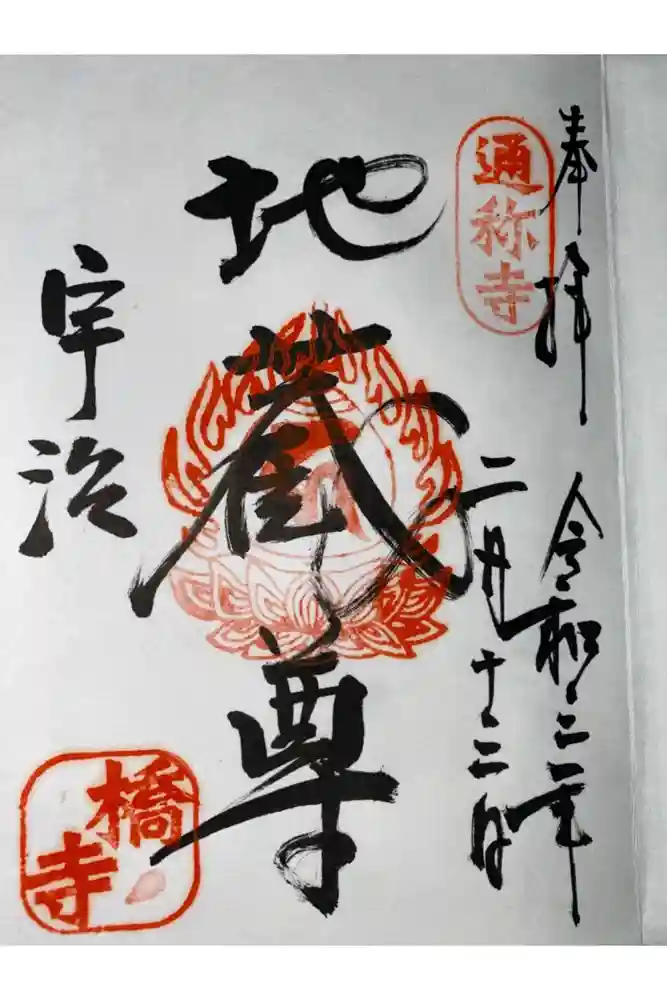 奉拝
令和三年
二月十二日
通称寺
地蔵尊
宇治
橋寺